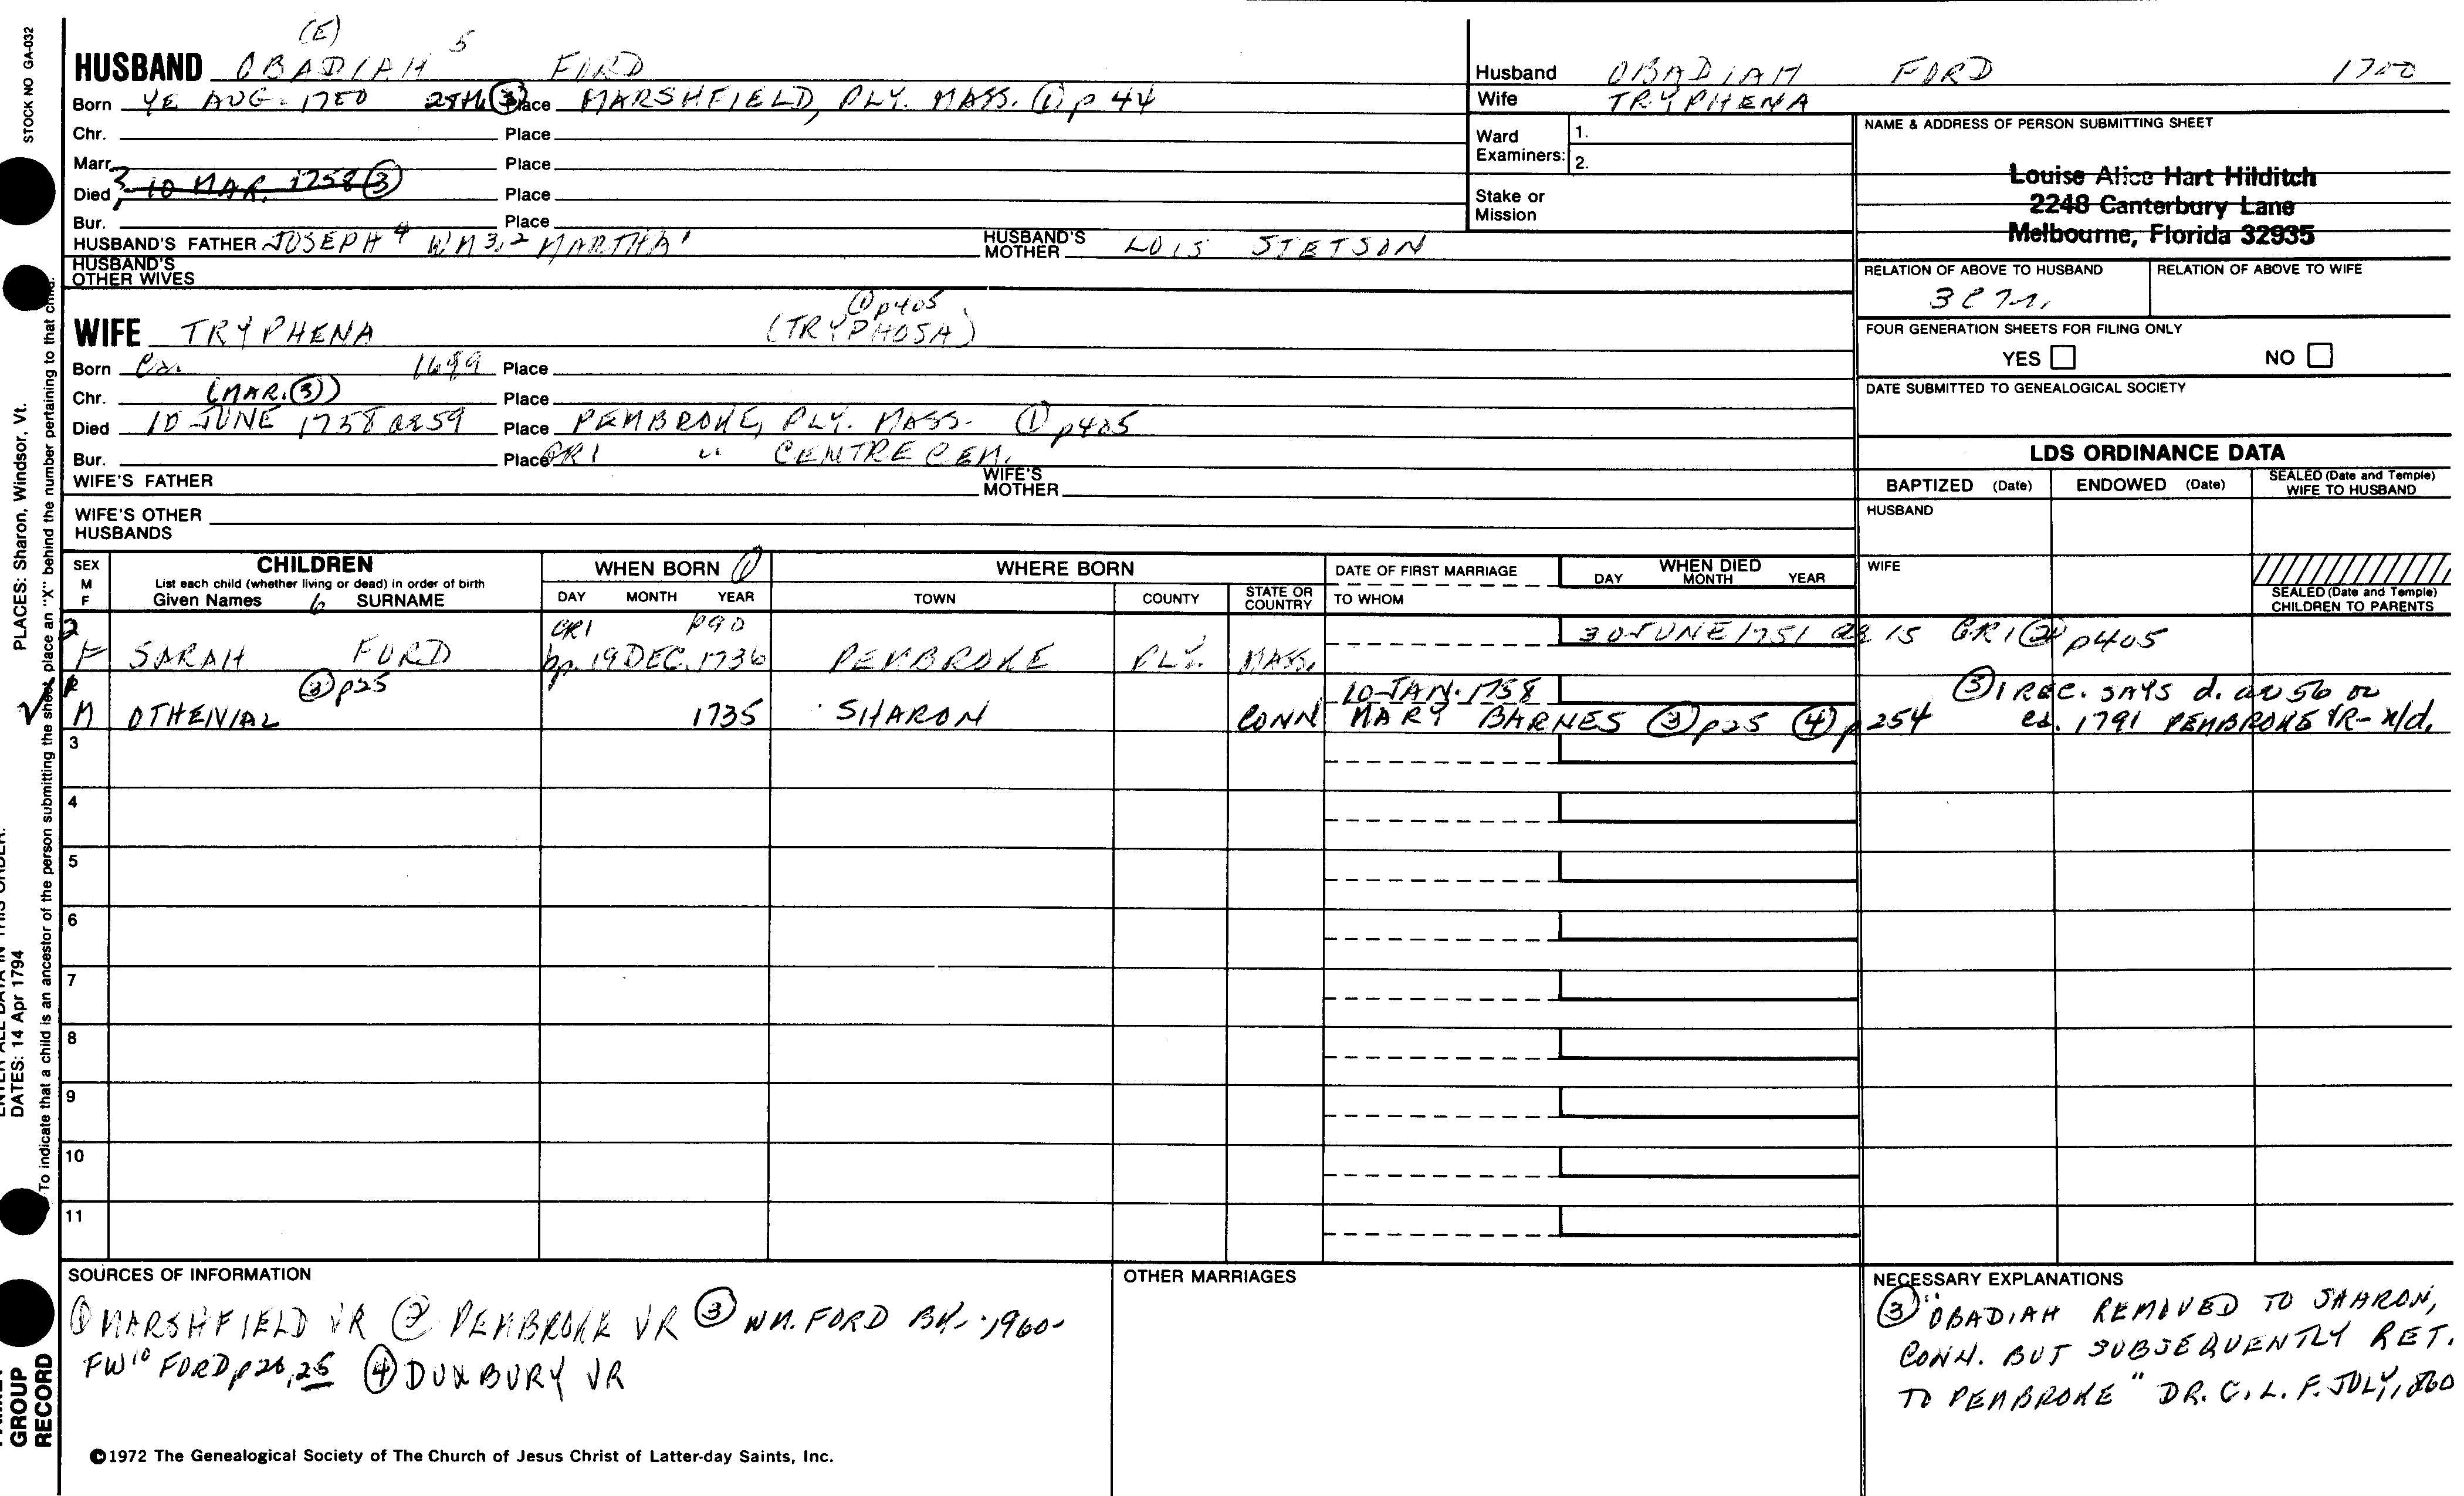 STOCK NO GA-032
(E)
HUSBAND OBADIAH 5 FORD
Born YE AUG. 1700 28th ③ Place MARSHFIELD, PLY. MASS. ① p 44
Chr. Place
Marr. Place
Died ? 10 MAR. 1758 ③ Place
Bur. Place
HUSBAND'S FATHER JOSEPH 4 WM 3, 2 MARTHA 1 HUSBAND'S MOTHER LOIS STETSON
HUSBAND'S OTHER WIVES
① p405
WIFE TRYPHENA (TRYPHOSA)
Born Ca. 1699 Place
Chr. (MAR. ③) Place
Died 10 JUNE 1758 ae 59 Place PEMBROKE, PLY. MASS. ① p405
Bur. Place GR1 " CENTRE CEM.
WIFE'S FATHER WIFE'S MOTHER
WIFE'S OTHER HUSBANDS
Husband OBADIAH FORD 1700
Wife TRYPHENA
Ward Examiners: 1.
2.
Stake or Mission
NAME & ADDRESS OF PERSON SUBMITTING SHEET
Louise Alice Hart Hilditch
2248 Canterbury Lane
Melbourne, Florida 32935
RELATION OF ABOVE TO HUSBAND RELATION OF ABOVE TO WIFE
FOUR GENERATION SHEETS FOR FILING ONLY
YES NO
DATE SUBMITTED TO GENEALOGICAL SOCIETY
LDS ORDINANCE DATA
BAPTIZED (Date) ENDOWED (Date) SEALED (Date and Temple) WIFE TO HUSBAND
HUSBAND
WIFE
SEALED (Date and Temple) CHILDREN TO PARENTS
SEX M F CHILDREN WHEN BORN ① WHERE BORN DATE OF FIRST MARRIAGE WHEN DIED
List each child (whether living or dead) in order of birth
Given Names 6 SURNAME DAY MONTH YEAR TOWN COUNTY STATE OR COUNTRY TO WHOM DAY MONTH YEAR
2 CR1 p90 30 JUNE 1751 ae 15 GR1 ② p405
F SARAH FORD bp. 19 DEC. 1736 PEMBROKE PLY. MASS.
③ p25 10 JAN. 1758 ③ 1 REC. SAYS d. ae 56 or
M OTHENIAL 1735 SHARON CONN MARY BARNES ③ p25 ④ p254 ca. 1791 PEMBROKE VR - n/d.
3
4
5
6
7
8
9
10
11
SOURCES OF INFORMATION
① MARSHFIELD VR ② PEMBROKE VR ③ WM. FORD BK - 1960 -
FW 10 FORD p 20, 25 ④ DUXBURY VR
OTHER MARRIAGES
NECESSARY EXPLANATIONS
③ "OBADIAH REMOVED TO SHARON,
CONN. BUT SUBSEQUENTLY RET.
TO PEMBROKE" DR. C. L. F. JULY,
©1972 The Genealogical Society of The Church of Jesus Christ of Latter-day Saints, Inc.
PLACES: Sharon, Windsor, Vt.
DATES: 14 Apr 1794
To indicate that a child is an ancestor of the person submitting the sheet, place an "X" behind the number pertaining to that child.
GROUP
RECORD